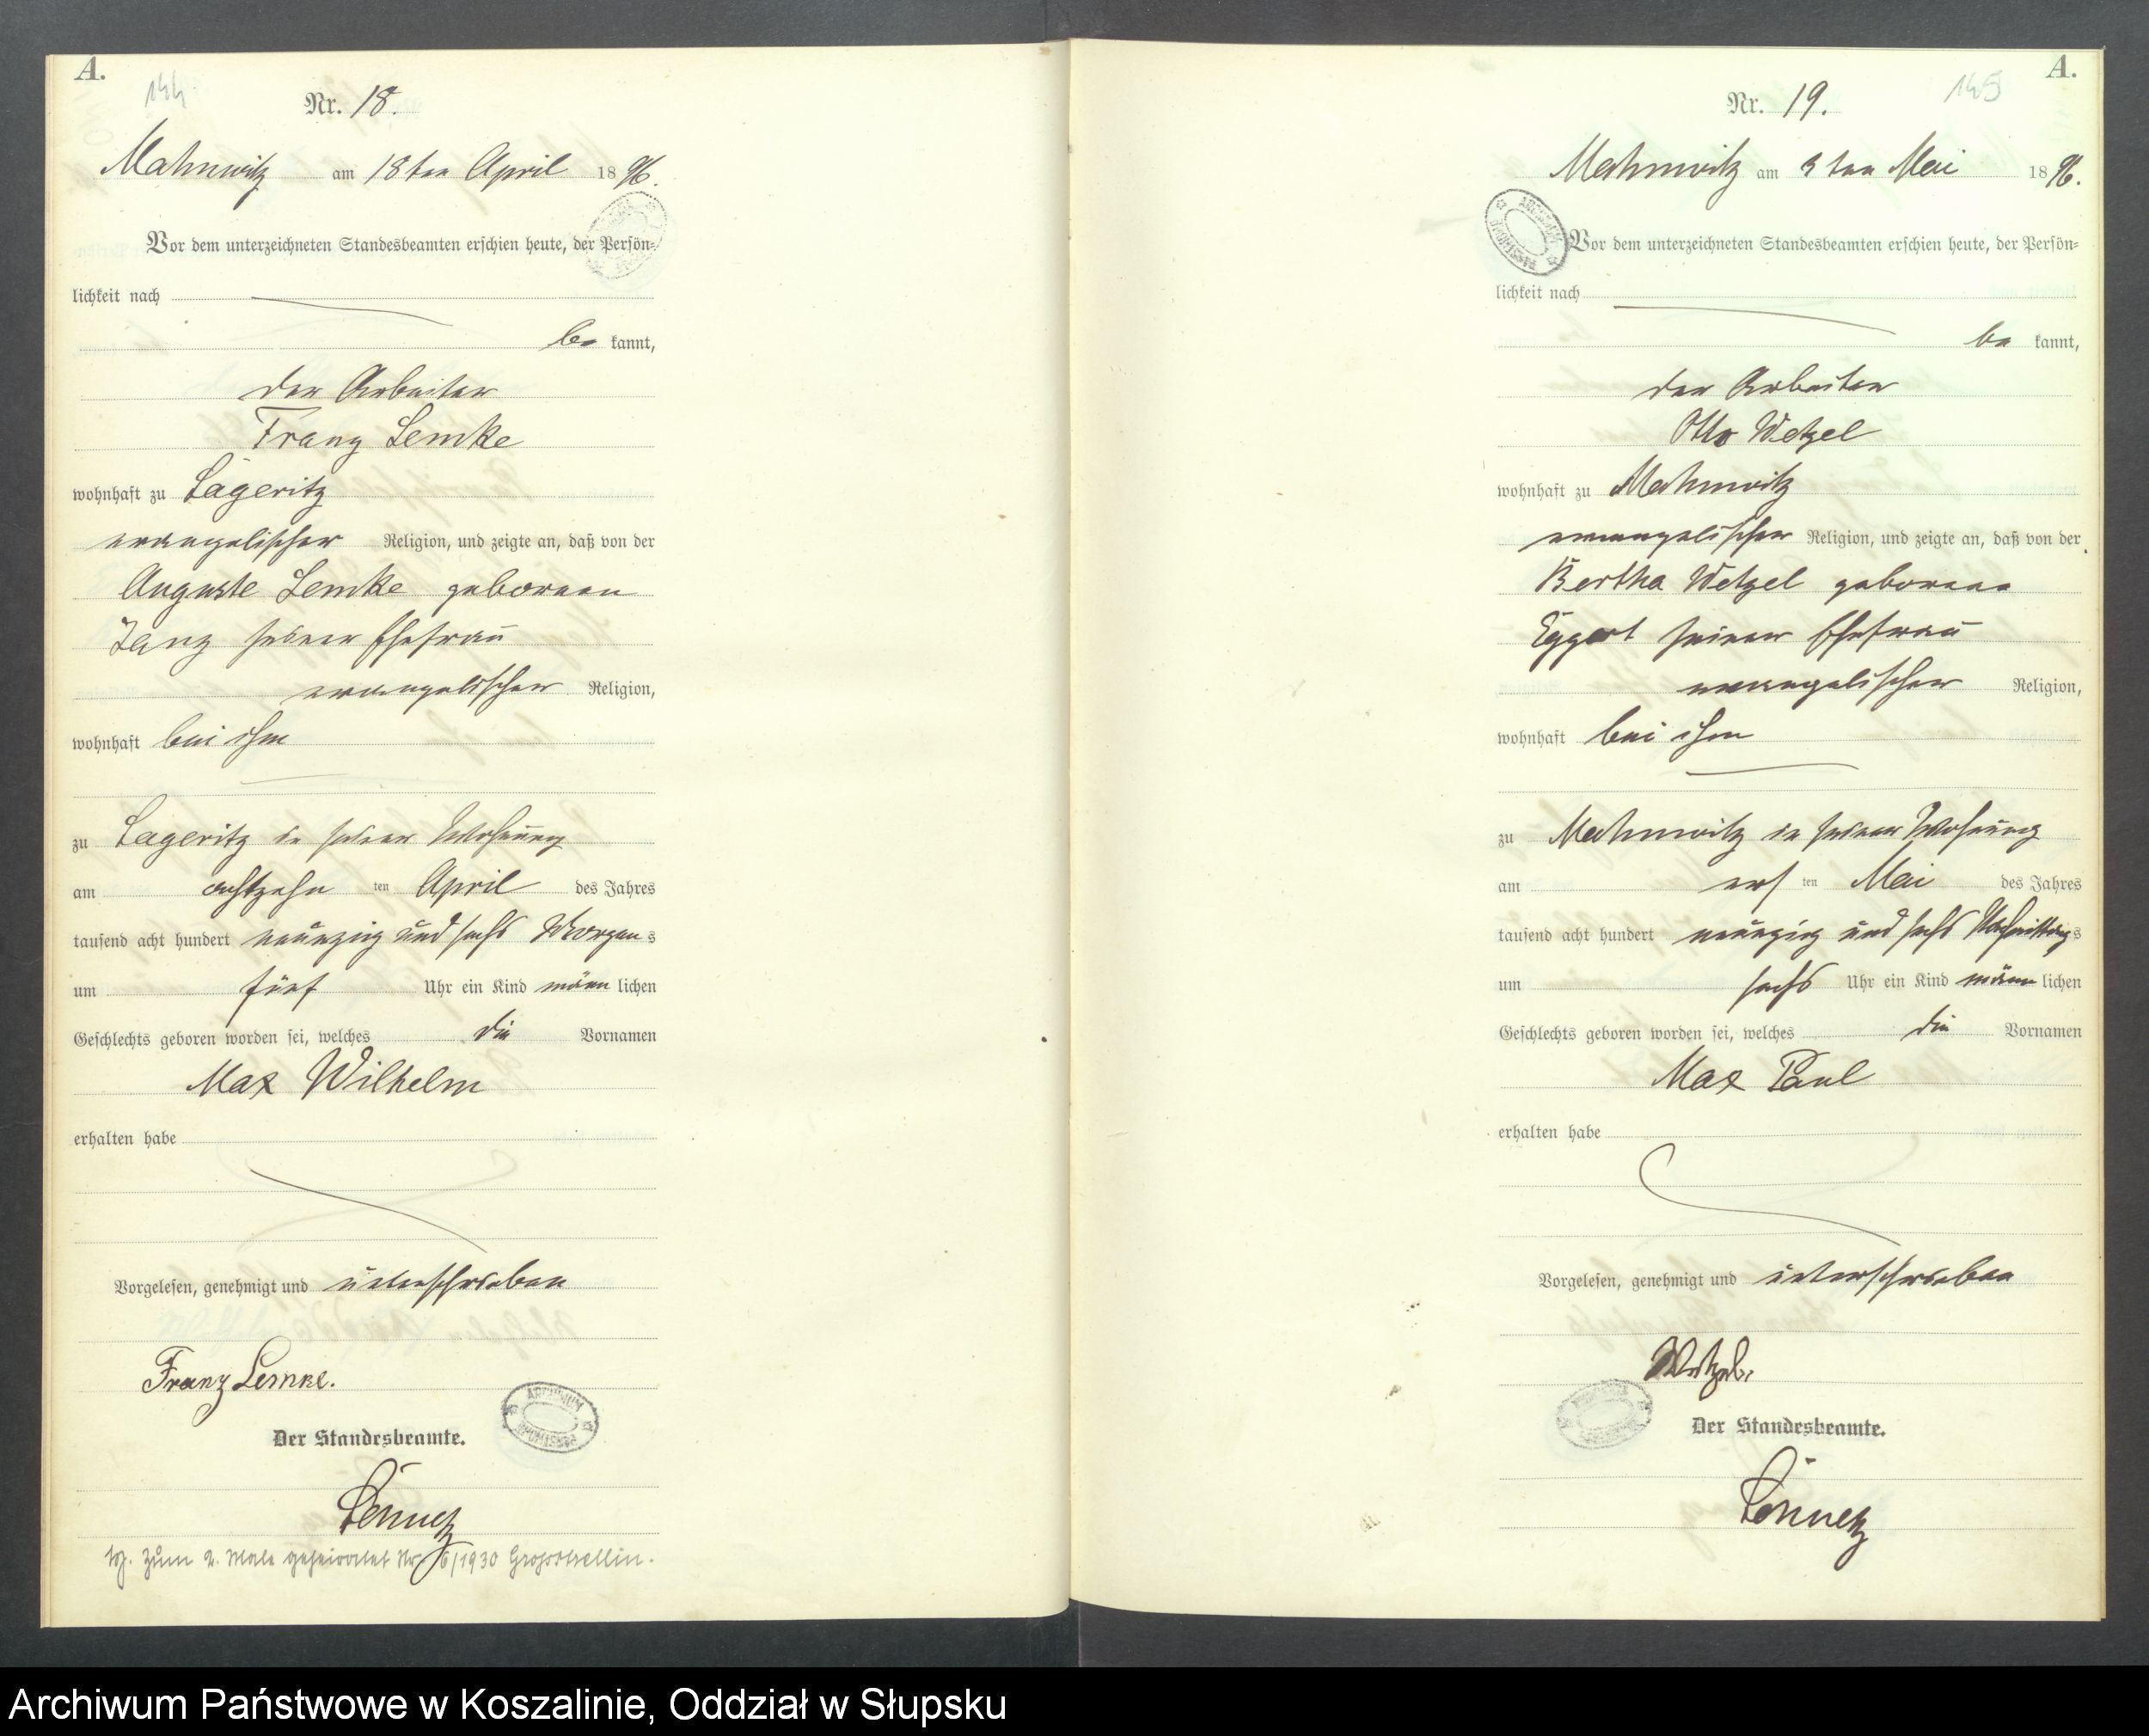 A.
144
Nr. 18.
Mahnwitz am 18ten April 1896.
Vor dem unterzeichneten Standesbeamten erschien heute, der Persön=
lichkeit nach
be kannt,
der Arbeiter
Franz Lemke
wohnhaft zu Lageritz
evangelischer Religion, und zeigte an, daß von der
Auguste Lemke geborenen
Janz seiner Ehefrau
evangelischer Religion,
wohnhaft bei ihm
zu Lageritz in seiner Wohnung
am achtzehn ten April des Jahres
tausend acht hundert neunzig und sechs Morgens
um fünf Uhr ein Kind männlichen
Geschlechts geboren worden sei, welches die Vornamen
Max Wilhelm
erhalten habe
Vorgelesen, genehmigt und unterschrieben
Franz Lemke.
Der Standesbeamte.
zum 2. Male geheiratet Nr. 6/1930 Großstrellin.
A.
145
Nr. 19.
Mahnwitz am 3ten Mai 1896.
ARCHIWUM PAŃSTWOWE
Vor dem unterzeichneten Standesbeamten erschien heute, der Persön=
lichkeit nach
be kannt,
der Arbeiter
Otto Wetzel
wohnhaft zu Mahnwitz
evangelischer Religion, und zeigte an, daß von der
Bertha Wetzel geborene
Eggert seiner Ehefrau
evangelischer Religion,
wohnhaft bei ihm
zu Mahnwitz in seiner Wohnung
am ers ten Mai des Jahres
tausend acht hundert neunzig und sechs Nachmittags
um sechs Uhr ein Kind männlichen
Geschlechts geboren worden sei, welches die Vornamen
Max Paul
erhalten habe
Vorgelesen, genehmigt und unterschrieben
Wetzel.
Der Standesbeamte.
Archiwum Państwowe w Koszalinie, Oddział w Słupsku